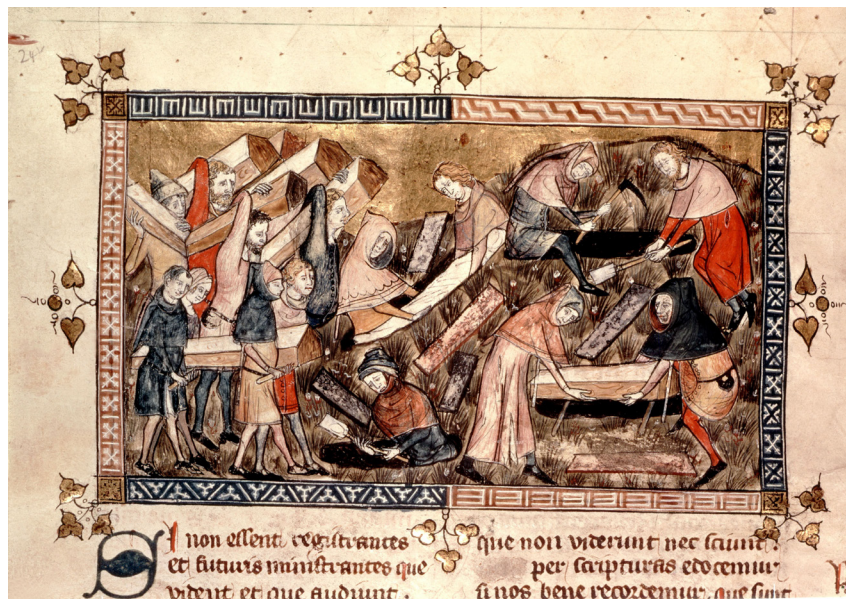 24
Si non essent registrantes
et futuris ministrantes que
vident et que audiunt.
que non viderunt nec sciunt.
per scripturas edocemur
si nos bene recordemur, que sunt